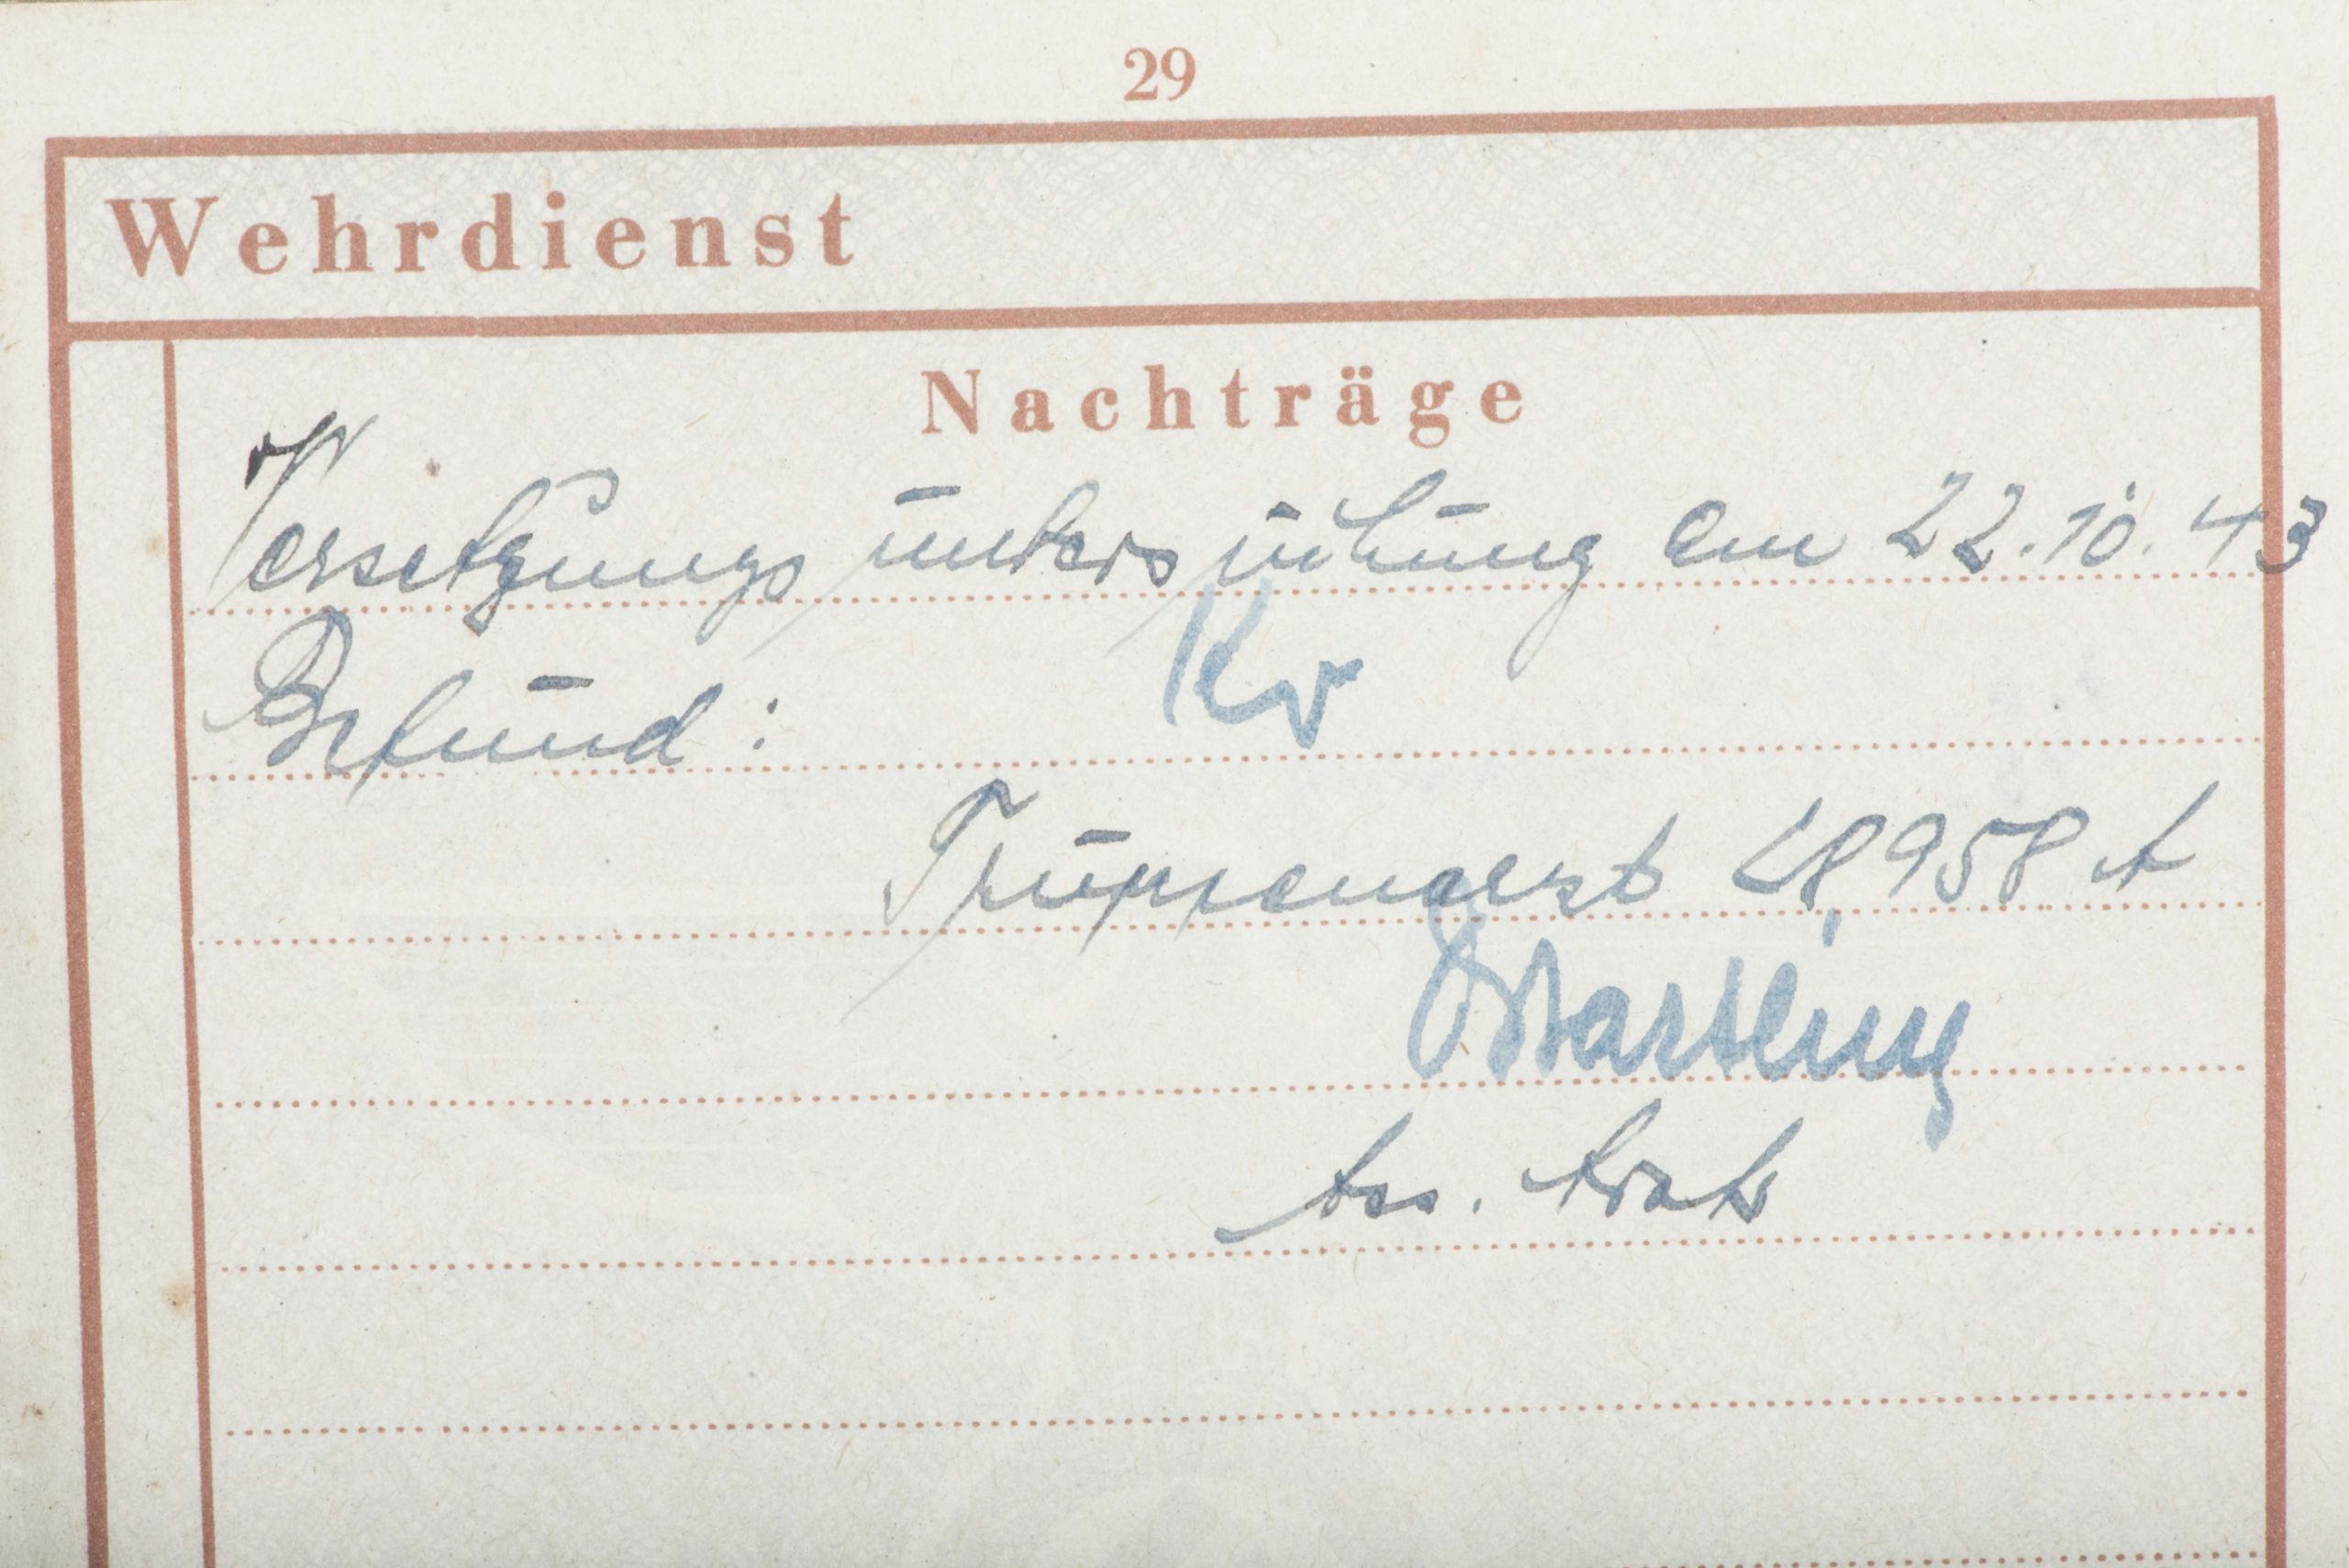 29
Wehrdienst
Nachträge
Versetzungsuntersuchung am 22.10.43
Befund: Kv
Truppenarzt L 8958 A
Ass. Arzt